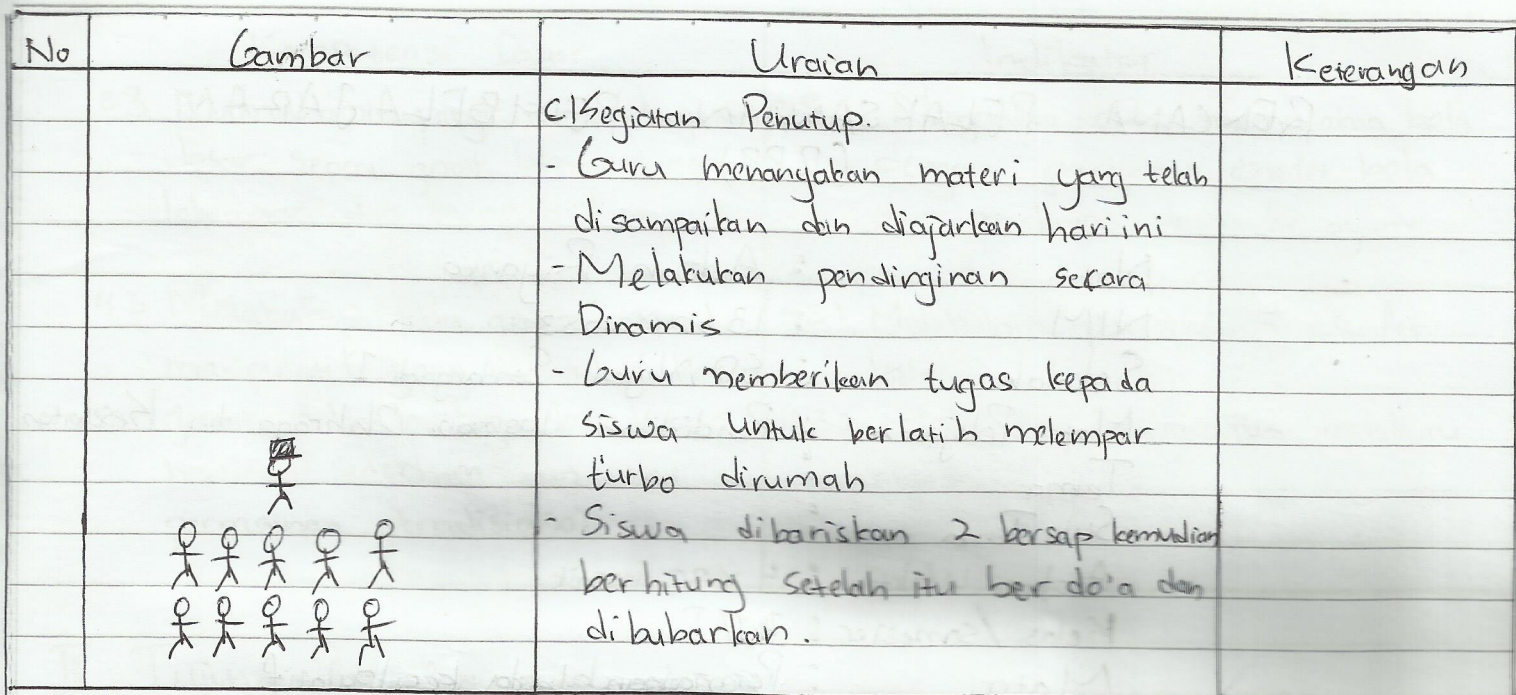 No Gambar Uraian Keterangan
c) Kegiatan Penutup.
- Guru menanyakan materi yang telah
disampaikan dan diajarkan hari ini
- Melakukan pendinginan secara
Dinamis
- Guru memberikan tugas kepada
siswa untuk berlatih melempar
turbo dirumah
- Siswa dibariskan 2 bersap kemudian
berhitung setelah itu ber do'a dan
dibubarkan.